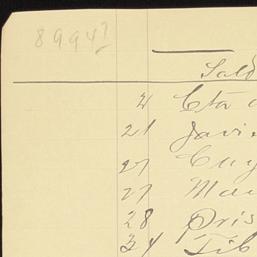 89947
Sald
4 Cta
21 Javie
27 Eug
27 Mau
28 Pris
34 Tib